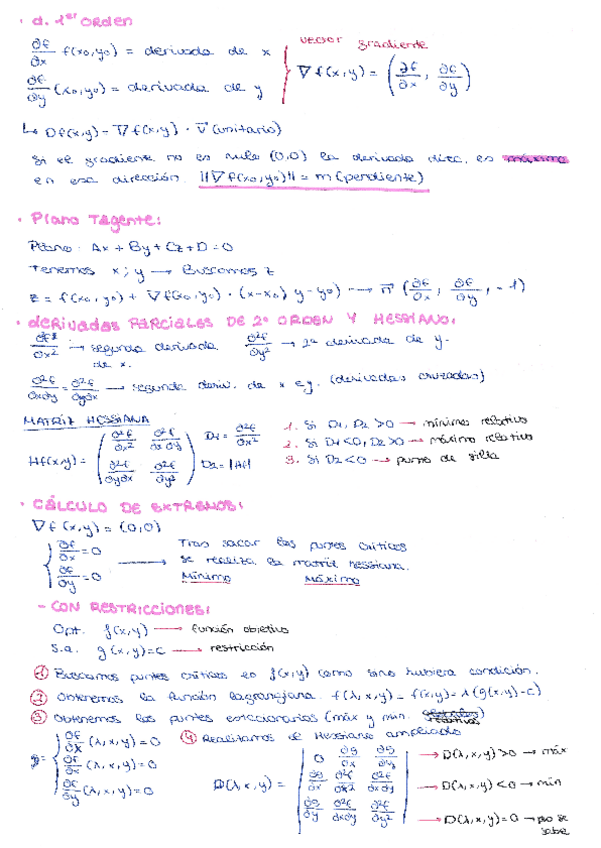 · d. 1er Orden
∂f/∂x f(x₀,y₀) = derivada de x
∂f/∂y (x₀,y₀) = derivada de y
vector gradiente
∇f(x,y) = (∂f/∂x, ∂f/∂y)
↳ Df(x,y) = ∇f(x,y) · v⃗ (unitario)
Si el gradiente no es nulo (0,0) la derivada direc. es máxima
en esa dirección. ||∇f(x₀,y₀)|| = m (pendiente)
· Plano Tagente:
Plano: Ax + By + Cz + D = 0
Tenemos x; y → Buscamos z
z = f(x₀,y₀) + ∇f(x₀,y₀) · (x-x₀, y-y₀) → n⃗ (∂f/∂x, ∂f/∂y, -1)
· derivadas PARCIALES DE 2º ORDEN Y HESSIANO:
∂f²/∂x² → segunda derivada de x. ∂²f/∂y² → 2ª derivada de y.
∂²f/∂x∂y = ∂²f/∂y∂x → segunda deriv. de x e y. (derivadas cruzadas)
MATRIZ HESSIANA
Hf(x,y) = (∂²f/∂x² ∂²f/∂x∂y
∂²f/∂y∂x ∂²f/∂y²)
D₁ = ∂²f/∂x²
D₂ = |H|
1. Si D₁, D₂ > 0 → mínimo relativo
2. Si D₁ < 0, D₂ > 0 → máximo relativo
3. Si D₂ < 0 → punto de silla
· CÁLCULO DE EXTREMOS:
∇f(x,y) = (0,0)
∂f/∂x = 0
∂f/∂y = 0
→ Tras sacar los puntos críticos
se realiza la matriz hessiana.
Mínimo Máximo
- CON RESTRICCIONES:
Opt. f(x,y) → función objetivo
S.a. g(x,y)=c → restricción
① Buscamos puntos críticos en f(x,y) como si no hubiera condición.
② Obtenemos la función lagrangiana. f(λ,x,y) = f(x,y) - λ(g(x,y)-c)
③ Obtenemos los puntos estacionarios (máx y mín.
∂f/∂λ (λ,x,y) = 0
∂f/∂x (λ,x,y) = 0
∂f/∂y (λ,x,y) = 0
④ Realizamos el Hessiano ampliado
D(λ,x,y) = | 0 ∂g/∂x ∂g/∂y
∂g/∂x ∂²f/∂x² ∂²f/∂x∂y
∂g/∂y ∂²f/∂x∂y ∂²f/∂y² |
→ D(λ,x,y) > 0 → máx
→ D(λ,x,y) < 0 → mín
→ D(λ,x,y) = 0 → no se
sabe